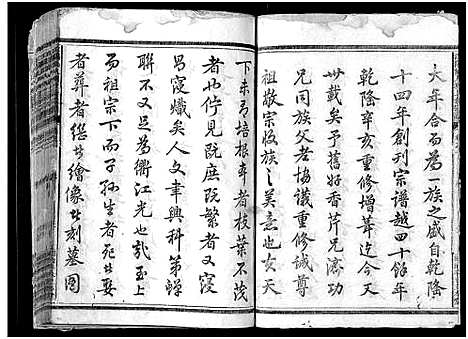 大年合而为一族之盛自乾隆
十四年創刊宗譜越四十餘年
乾隆辛亥重修增葺迄今又
卅載矣予舊好香芹兄濤功
兄同族父老協議重修誠尊
祖敬宗收族之美意也女天
下未有培根本者枝葉不茂
者也佇見既庶既繁者又寖
昌寖熾矣人文聿興科第蟬
聯不又足為衢江光也哉至上
而祖宗下而子孫生者死者娶
者葬者繼世繪像世刻墓圖